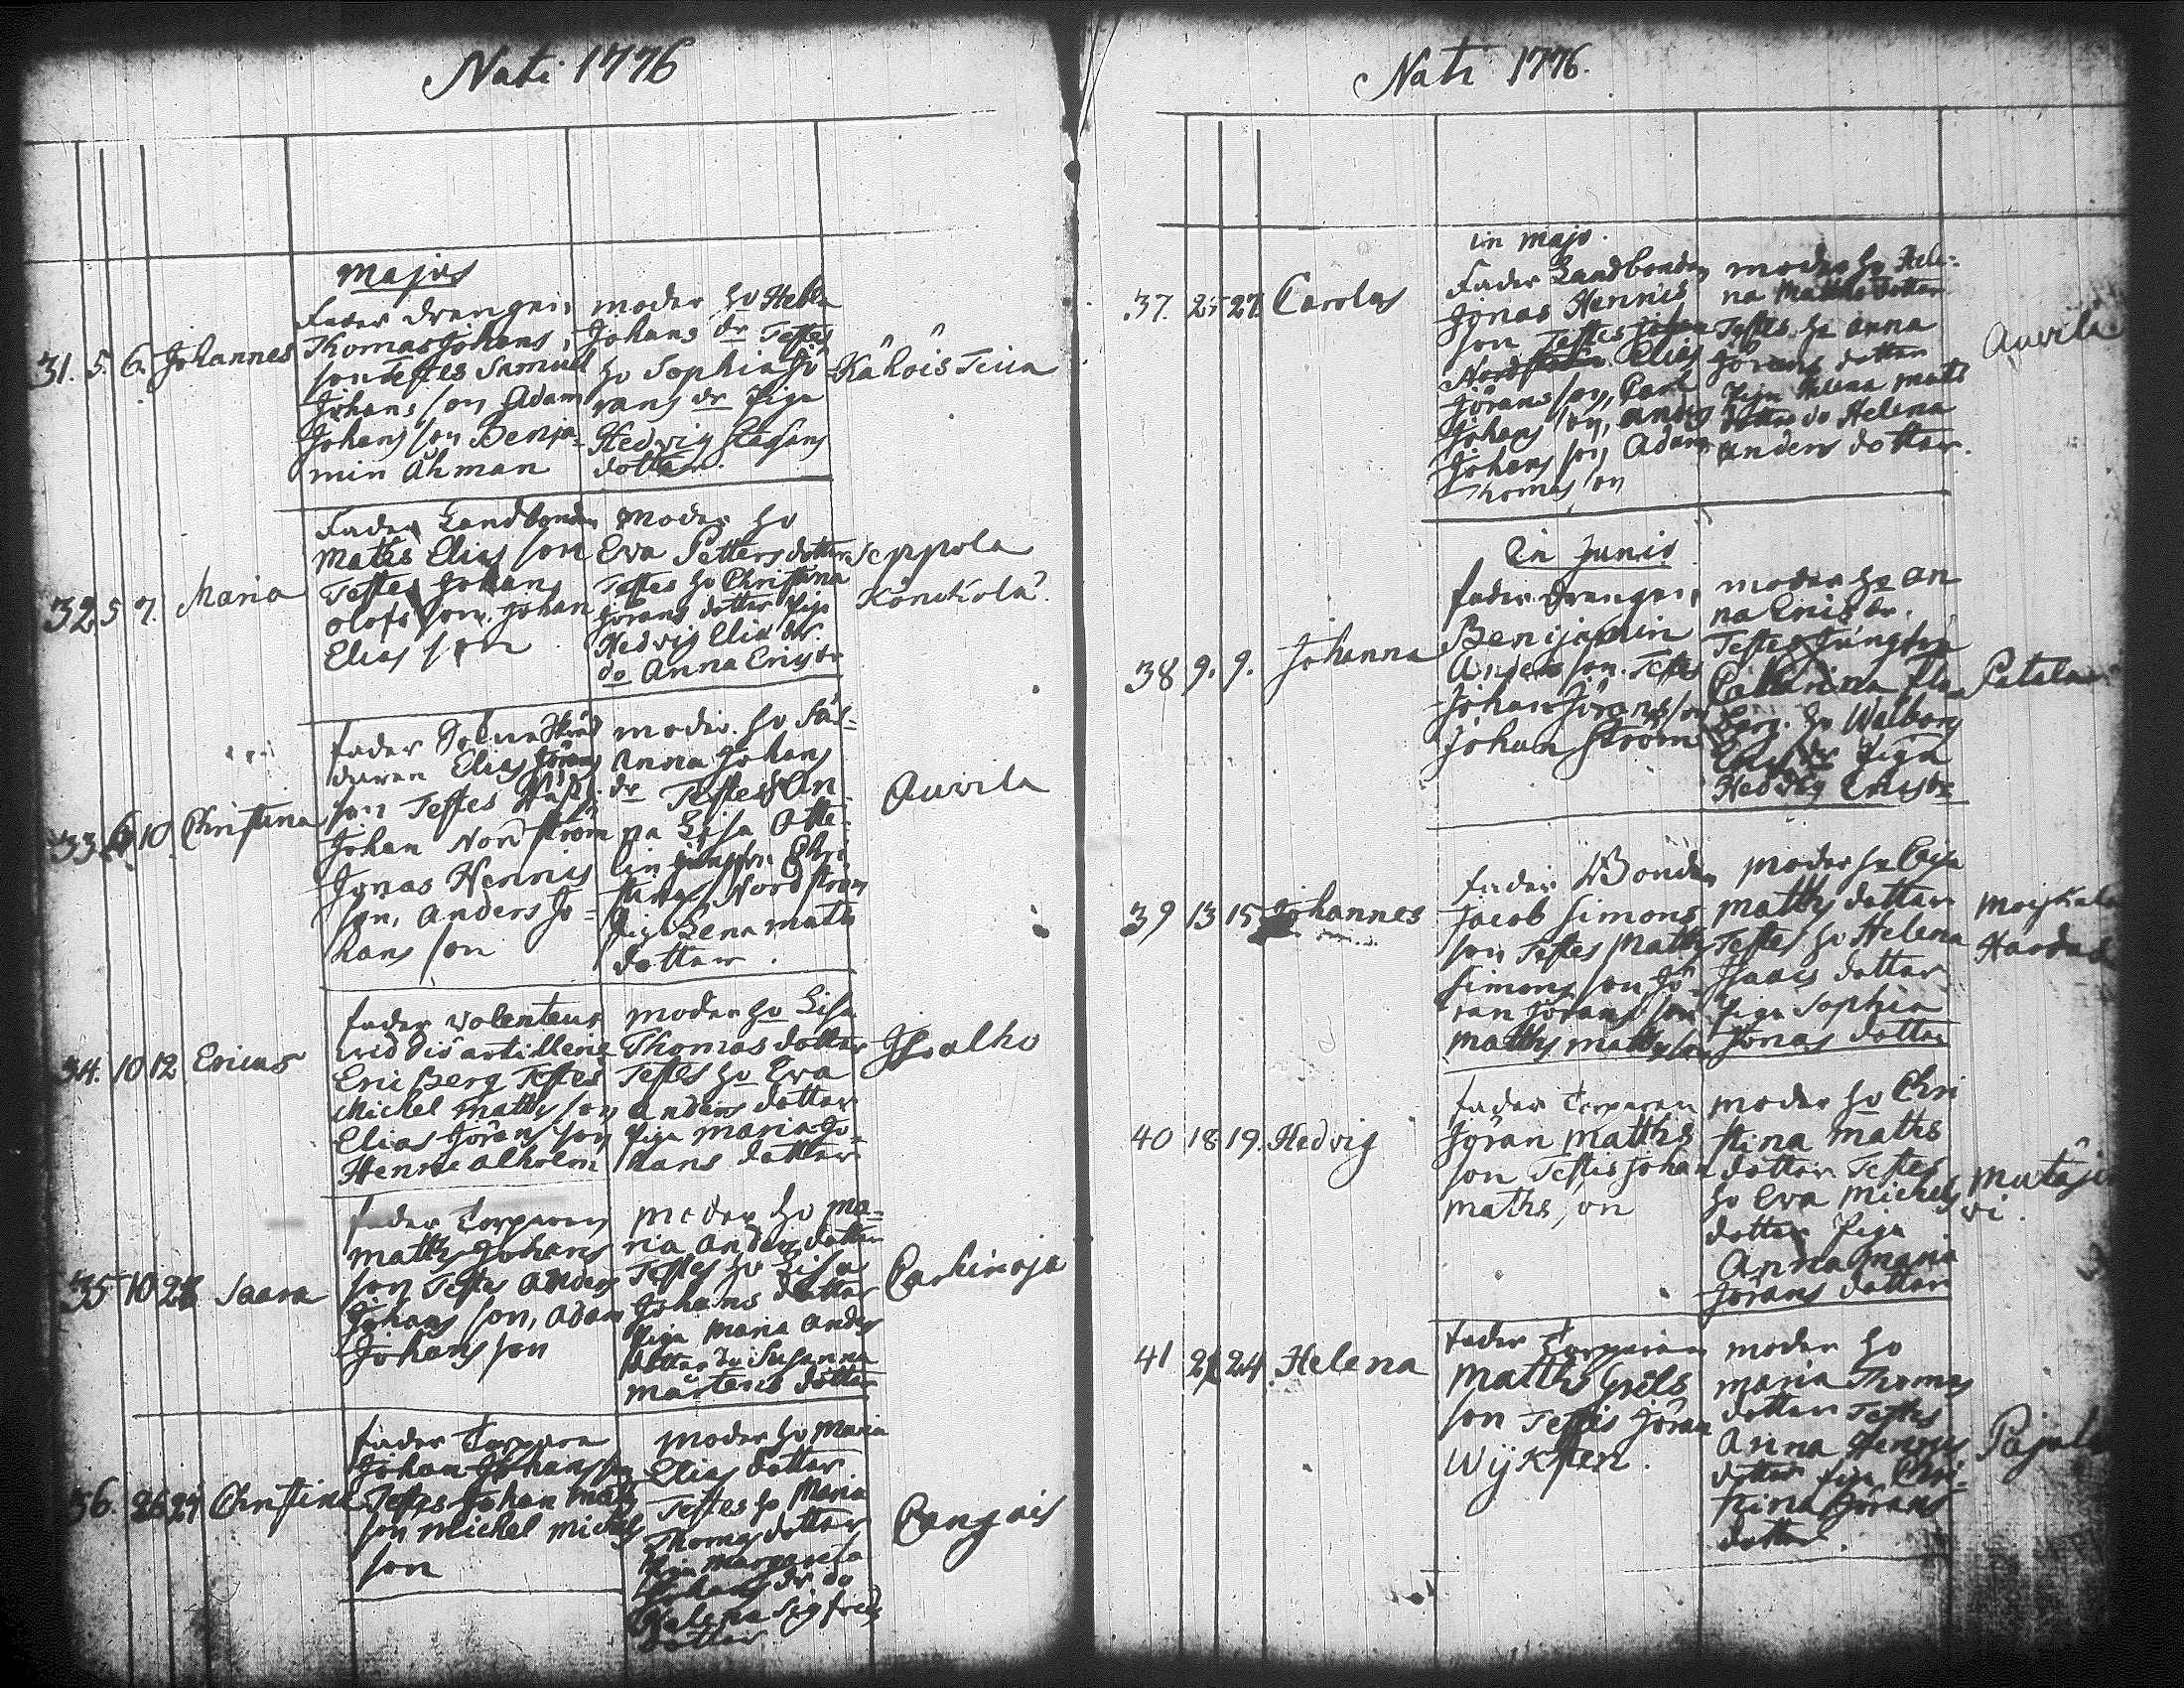 Nati 1776
Majus
31. 5. 6. Johannes
Fader Drengen
Thomas Johans
son Testes Samuel
Johans son Adam
Johans son Benja-
min Åhman
moder ho Hebla
Johans dr Testes
ho Sophia Jö
rans dr Piga
Hedvig Stafans
dotter.
Kåhois Teiia
32 5 7. Maria
Fader Landbonden
Matts Elias son
Testes Johans
Olofs son. Johan
Elias son
Moder ho
Eva Petters dotter
Testes ho Christina
Jörans dotter Piga
Hedvig Elia dr.
do Anna Erics dr
Seppola
Könckola?
33 6 10 Christina
fader Sockne Skräd
daren Elias Jörans
son Testes
Johan Nordström
Jonas Hennis
son, Anders Jo-
hans son
moder. ho Sus-
anna Johans
dr Testes An
na Lisa Atte-
lin jungfru Chri
stina Nordström
Piga Lena mats
dotter.
Auvila
34. 10 12 Ericus
fader volenteur
wid Dis artillerie
Eric Berg Testes
Michel Matts son
Elias Jörans son
Henric Alholm
moder ho Lisa
Thomas dotter
Testes ho Eva
Anders dotter
Piga Maria Jo-
hans dotter
Isoalho
35 10 Saara
fader Torparen
Matts Johans
son Testes Anders
Johans son, Adam
Johans son
moder ho Ma-
ria Anders dotter
Testes ho Lisa
Johans dotter
Piga Maria Anders
dotter do Susanna
Mårtens dotter
Carhinoja
36. 26 27 Christina
fader Torpare
Johan Johans son
Testes Johan Matts
son Michel Michels
son
moder ho Maria
Elias dotter
Testes ho Maria
Thomas dotter
Piga Margareta
Johans dr do
Helena Sigfreds
dotter
Cangais
Nati 1776.
in majo.
37. 25 27 Carolus
Fader Landbonden
Jonas Hennis
son Testes Johan
Nordström Elias
Jörans son, Carl
Johans son, Anders
Johans son, Adam
Thomas son
moder ho Hele-
na Matths dotter
Testes. ho Anna
Jörans dotter
Piga Helena Mats
dotter do Helena
Anders dotter.
Auvila
in Junio
38 9. 9. Johanna
fader Drengen
Benjamin
Anders son. Testes
Johan Jörans son
Johan Ström
moder ho An
na Erics dr.
Testes Jungfru
Catharina
berg. ho Walborg
Piga
Hedvig Ericsdr
Patala
39 13 15 Johannes
fader Bonden
Jacob Simons
son Testes Matths
Simons son Jö-
ran Jörans son
Matths Matths son
moder ho Caisa
Matths dotter
Testes ho Helena
Isaacs dotter
Piga Sophia
Jonas dotter
40 18 19. Hedvig
fader Torparen
Jöran Matths
son Testis Johan
Maths son
moder ho Chri
stina Maths
dotter Testes
ho Eva Michels
dotter Piga
Anna Maria
Jörans dotter
Mutåjär
vi.
41 21 24. Helena
fader Torparen
Matths Grels
son Testis Jöran
Wijksten.
moder ho
Maria Thomas
dotter Testes
Anna Hennrs
dotter Piga Chri-
stina Jörans
dotter.
Pajala